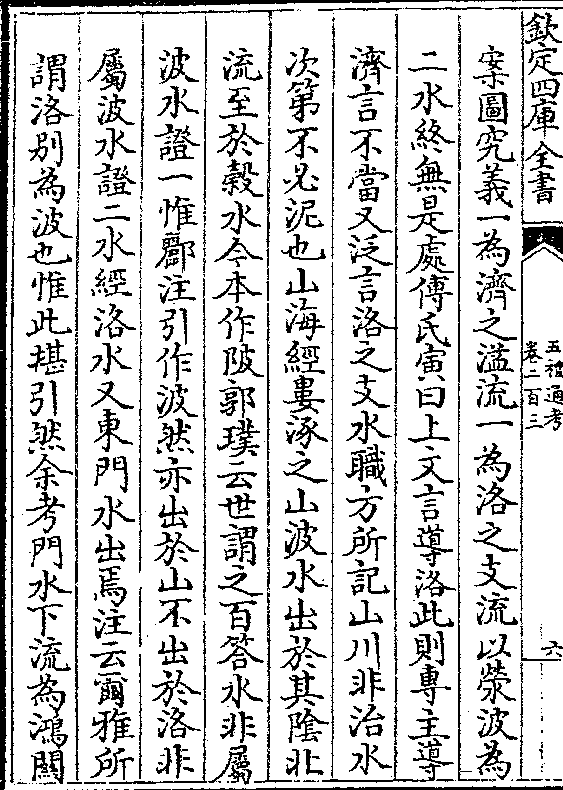 欽定四庫全書
五禮通考
卷二百三
六
案圖究義一為濟之溢流一為洛之支流以滎波為
二水終無是處傅氏寅曰上文言導洛此則專主導
濟言不當又泛言洛之支水職方所記山川非治水
次第不必泥也山海經婁涿之山波水出於其陰北
流至於榖水今本作陂郭璞云世謂之百答水非屬
波水證一惟酈注引作波然亦出於山不出於洛非
屬波水證二水經洛水又東門水出焉注云爾雅所
謂洛别為波也惟此堪引然余考門水下流為鴻關